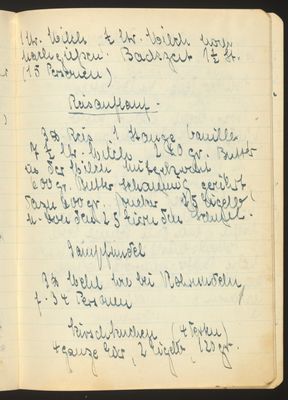 1 ltr. Milch ½ ltr. Milch
nachgießen. Backzeit 1½ St.
(15 Personen)
Reisauflauf.
Reis 1 Stange Vanille
7½ ltr. Milch 240 gr. Butter
in der Milch
600 gr. Butter schaumig gerührt
dazu 600 gr. Zucker 25 Eigelb
u. von den 25 Eiern den Schnee.
Dampfnudel
Mehl wie bei Rohrnudeln
f. 34 Personen
Kirschkuchen (4 Torten)
4 ganze Eier, 2 Eigelb, 120 gr.